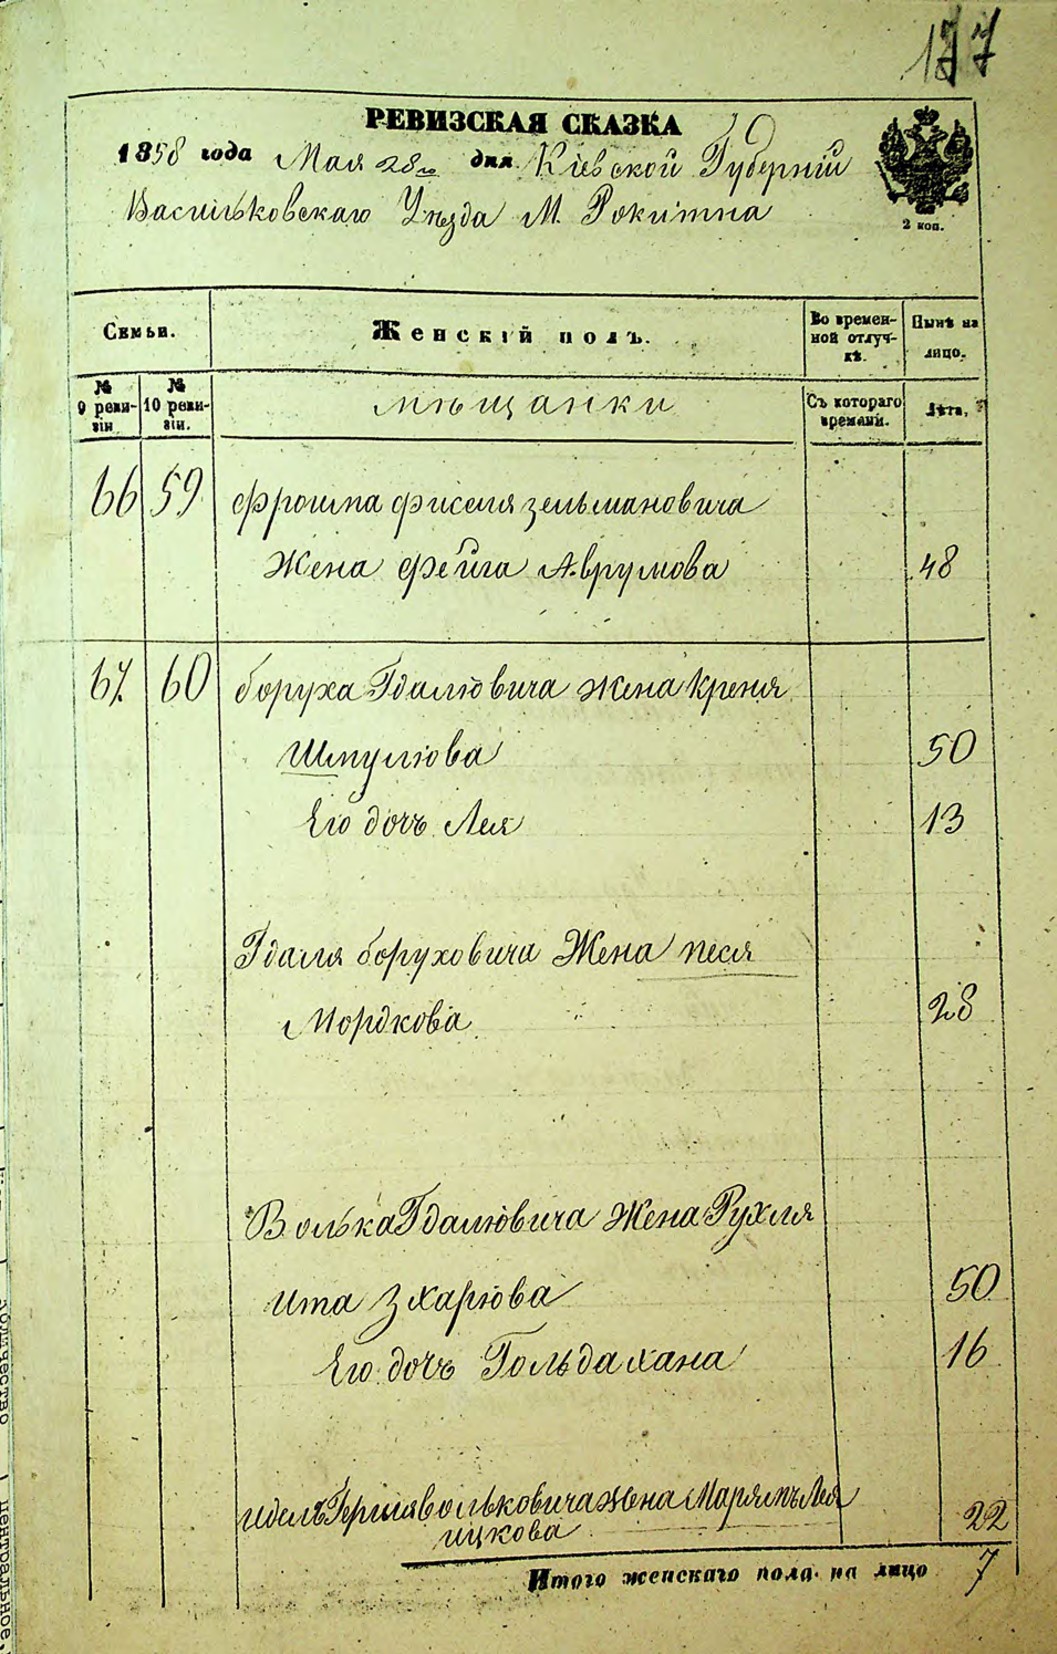 177
РЕВИЗСКАЯ СКАЗКА
1858 года Мая 28го дня Кіевской Губерніи
Васильковскаго Уѣзда М. Рокитна
2 коп.
Семьи.
Женскій полъ.
Во времен-
ной отлуч-
кѣ.
Нынѣ на
лицо.
№
9 реви-
зіи
№
10 реви-
зіи.
мѣщанки
Съ котораго
времени.
Лѣта.
66 59 Фроима Фиселя Зельмановича
Жена Фейга Аврумова 48
67. 60 Боруха Гдалювича жена Креня
Шмулюва 50
Его дочъ Лея 13
Гдаля Боруховича Жена Песя
Мордкова 28
Волька Гдалювича Жена Рухля
Ита Зхарюва 50
Его дочъ Гольда Хана 16
Иделъ Гершя Вольковича жена Марямъ Лея
Ицкова 22
Итого женскаго пола на лицо 7
количество
центральное,